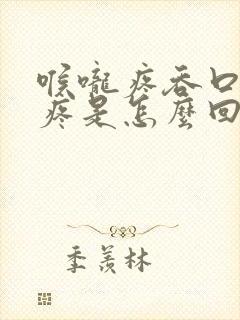 喉嚨疼吞口
疼是怎麼回
季羨林